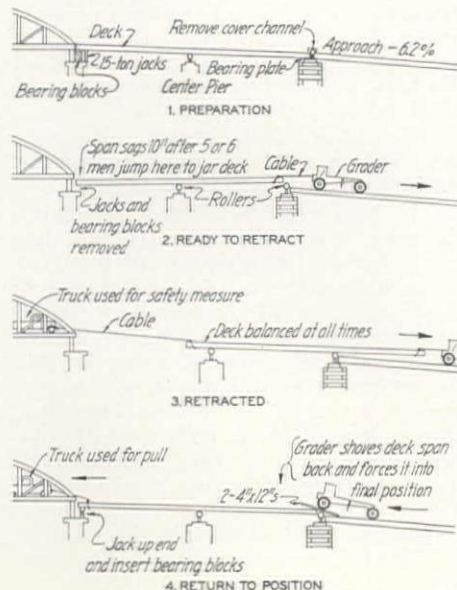 Deck
Remove cover channel
Approach - 6.2%
2 15-ton jacks
Bearing plate
Bearing blocks
Center Pier
1. PREPARATION
Span sags 10" after 5 or 6
men jump here to jar deck
Cable
Grader
Jacks and
bearing blocks
removed
Rollers
2. READY TO RETRACT
Truck used for safety measure
Cable
Deck balanced at all times
3. RETRACTED
Truck used for pull
Grader shoves deck span
back and forces it into
final position
2-4"x12"s
Jack up end
and insert bearing blocks
4. RETURN TO POSITION